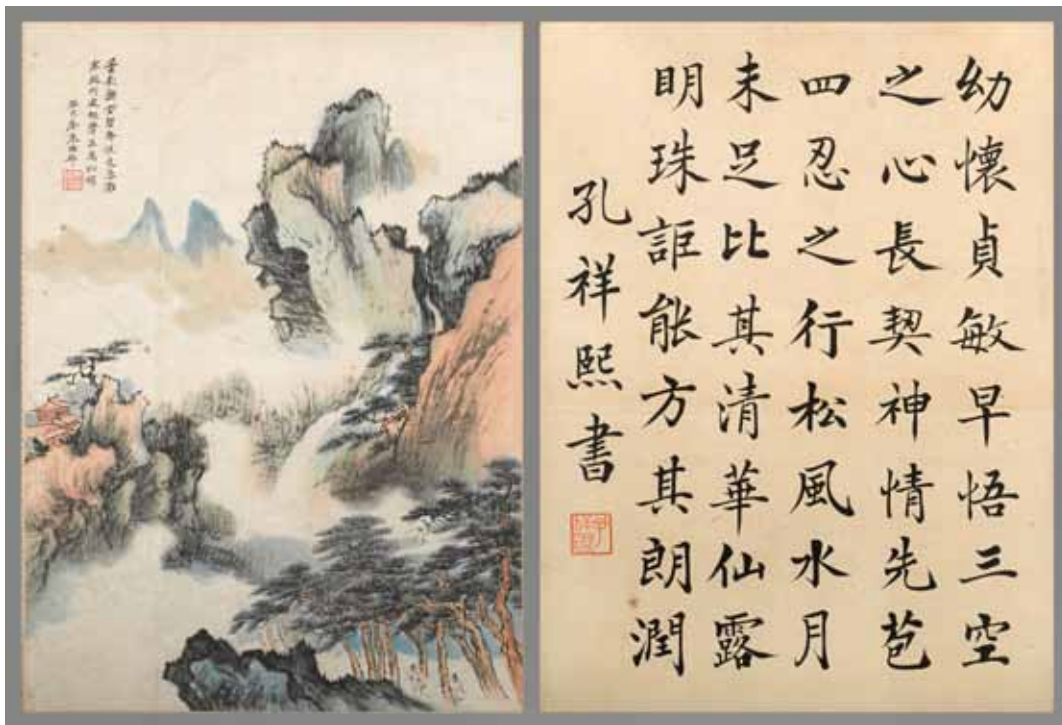 幼懷貞敏早悟三空
之心長契神情先苞
四忍之行松風水月
未足比其清華仙露
明珠詎能方其朗潤
孔祥熙書